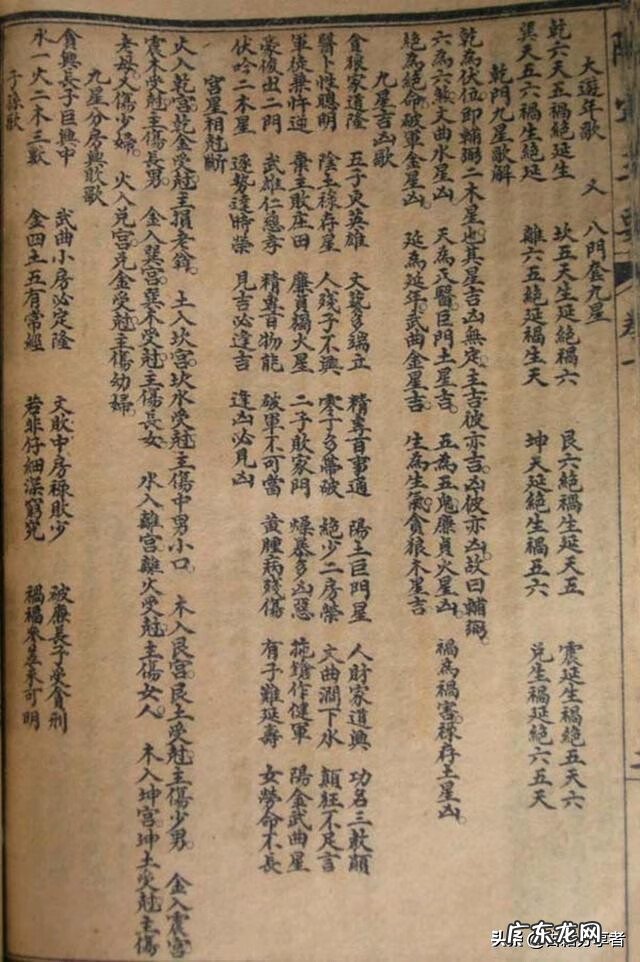 大遊年歌 又 八門套九星
乾六天五禍絕延生 坎五天生延絕禍六 艮六絕禍生延天五 震延生禍絕五天六
巽天五六禍生絕延 離六五絕延禍生天 坤天延絕生禍五六 兌生禍延絕六五天
乾門九星歌解
乾為伏位即輔弼二木星也其星吉凶無定主吉彼亦吉凶彼亦凶故曰輔弼
六為六煞文曲水星凶 天為天醫巨門土星吉 五為五鬼廉貞火星凶 禍為禍害祿存土星凶
絕為絕命破軍金星凶 延為延年武曲金星吉 生為生氣貪狼木星吉
九星吉凶歌
貪狼家道隆 五子更英雄 文藝多端立 精專百事通 陽土巨門星 人財家道興 功名三敕顛
醫卜性聰明 陰土祿存星 人殘子不興 零子多帶破 絕少二房榮 文曲潤下水 顛狂不足言
軍徒兼忤逆 棄主敗庄田 廉貞獨火星 二子敗家門 燥暴多凶惡 拖鎗作健軍 陽金武曲星
豪俊出二門 武雄仁德孝 精專百物能 破軍不可當 黃腫病殘傷 有子難延壽 女勞命不長
伏吟二木星 逐勢達時榮 見吉必逢吉 逢凶必見凶
宮星相尅斷
火入乾宮乾金受尅主損老翁 土入坎宮坎水受尅主傷中男小口 木入艮宮艮土受尅主傷少男 金入震宮
震木受尅主傷長男 金入巽宮巽木受尅主傷長女 水入離宮離火受尅主傷女人 木入坤宮坤土受尅主傷
老母又傷少婦 火入兌宮兌金受尅主傷幼婦
九星分房興敗歌
貪興長子巨興中 武曲小房必定隆 文敗中房祿敗少 破廉長子受貪刑
水一火二木三數 金四土五有常經 若非仔細深窮究 禍福參差未可明
子孫歌
头条
广东龙网